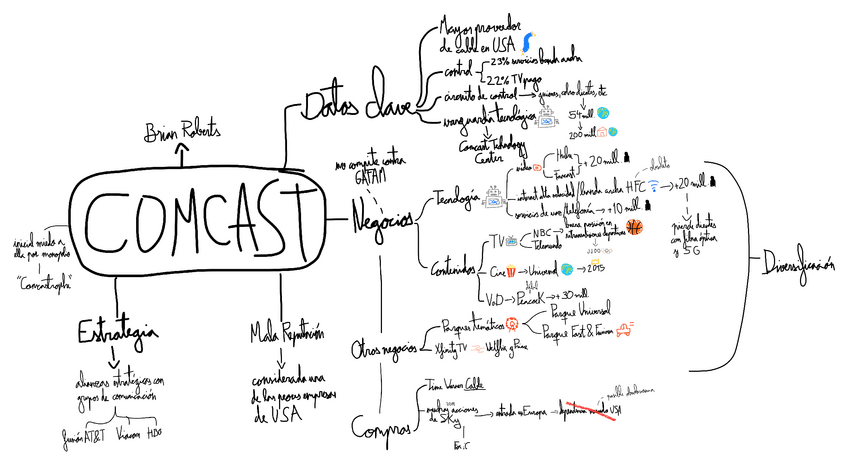 Brian Roberts
COMCAST
inicial miedo a
ella por monopolio
"Comcastrophe"
Estrategia
alianzas estratégicas con
grupos de comunicación
AT&T
Viacom
HBO
Mala Reputación
considerada una
de las peores empresas
de USA
Datos clave
Mayor proveedor
de cable en USA
control
23% servicios banda ancha
22% TV pago
circuito de control
vanguardia tecnológica
54 mill
200 mill
Comcast Technology
Center
no compite contra
GAFAM
Negocios
Tecnología
video
Hulu
+20 mill
internet alta velocidad/banda ancha HFC
+20 mill
servicios de voz/telefonía
+10 mill
pierde clientes
con fibra óptica
y 5G
Contenidos
TV
NBC
Telemundo
buena posición en
retransmisiones deportivas
Cine
Universal
2015
VoD
Peacock
+30 mill
Otros negocios
Parques temáticos
Parque Universal
Parque Fast & Furious
Xfinity TV
Netflix y Prime
Compras
Time Warner Cable
muchas acciones
de Sky
entrada en Europa
USA
Diversificación